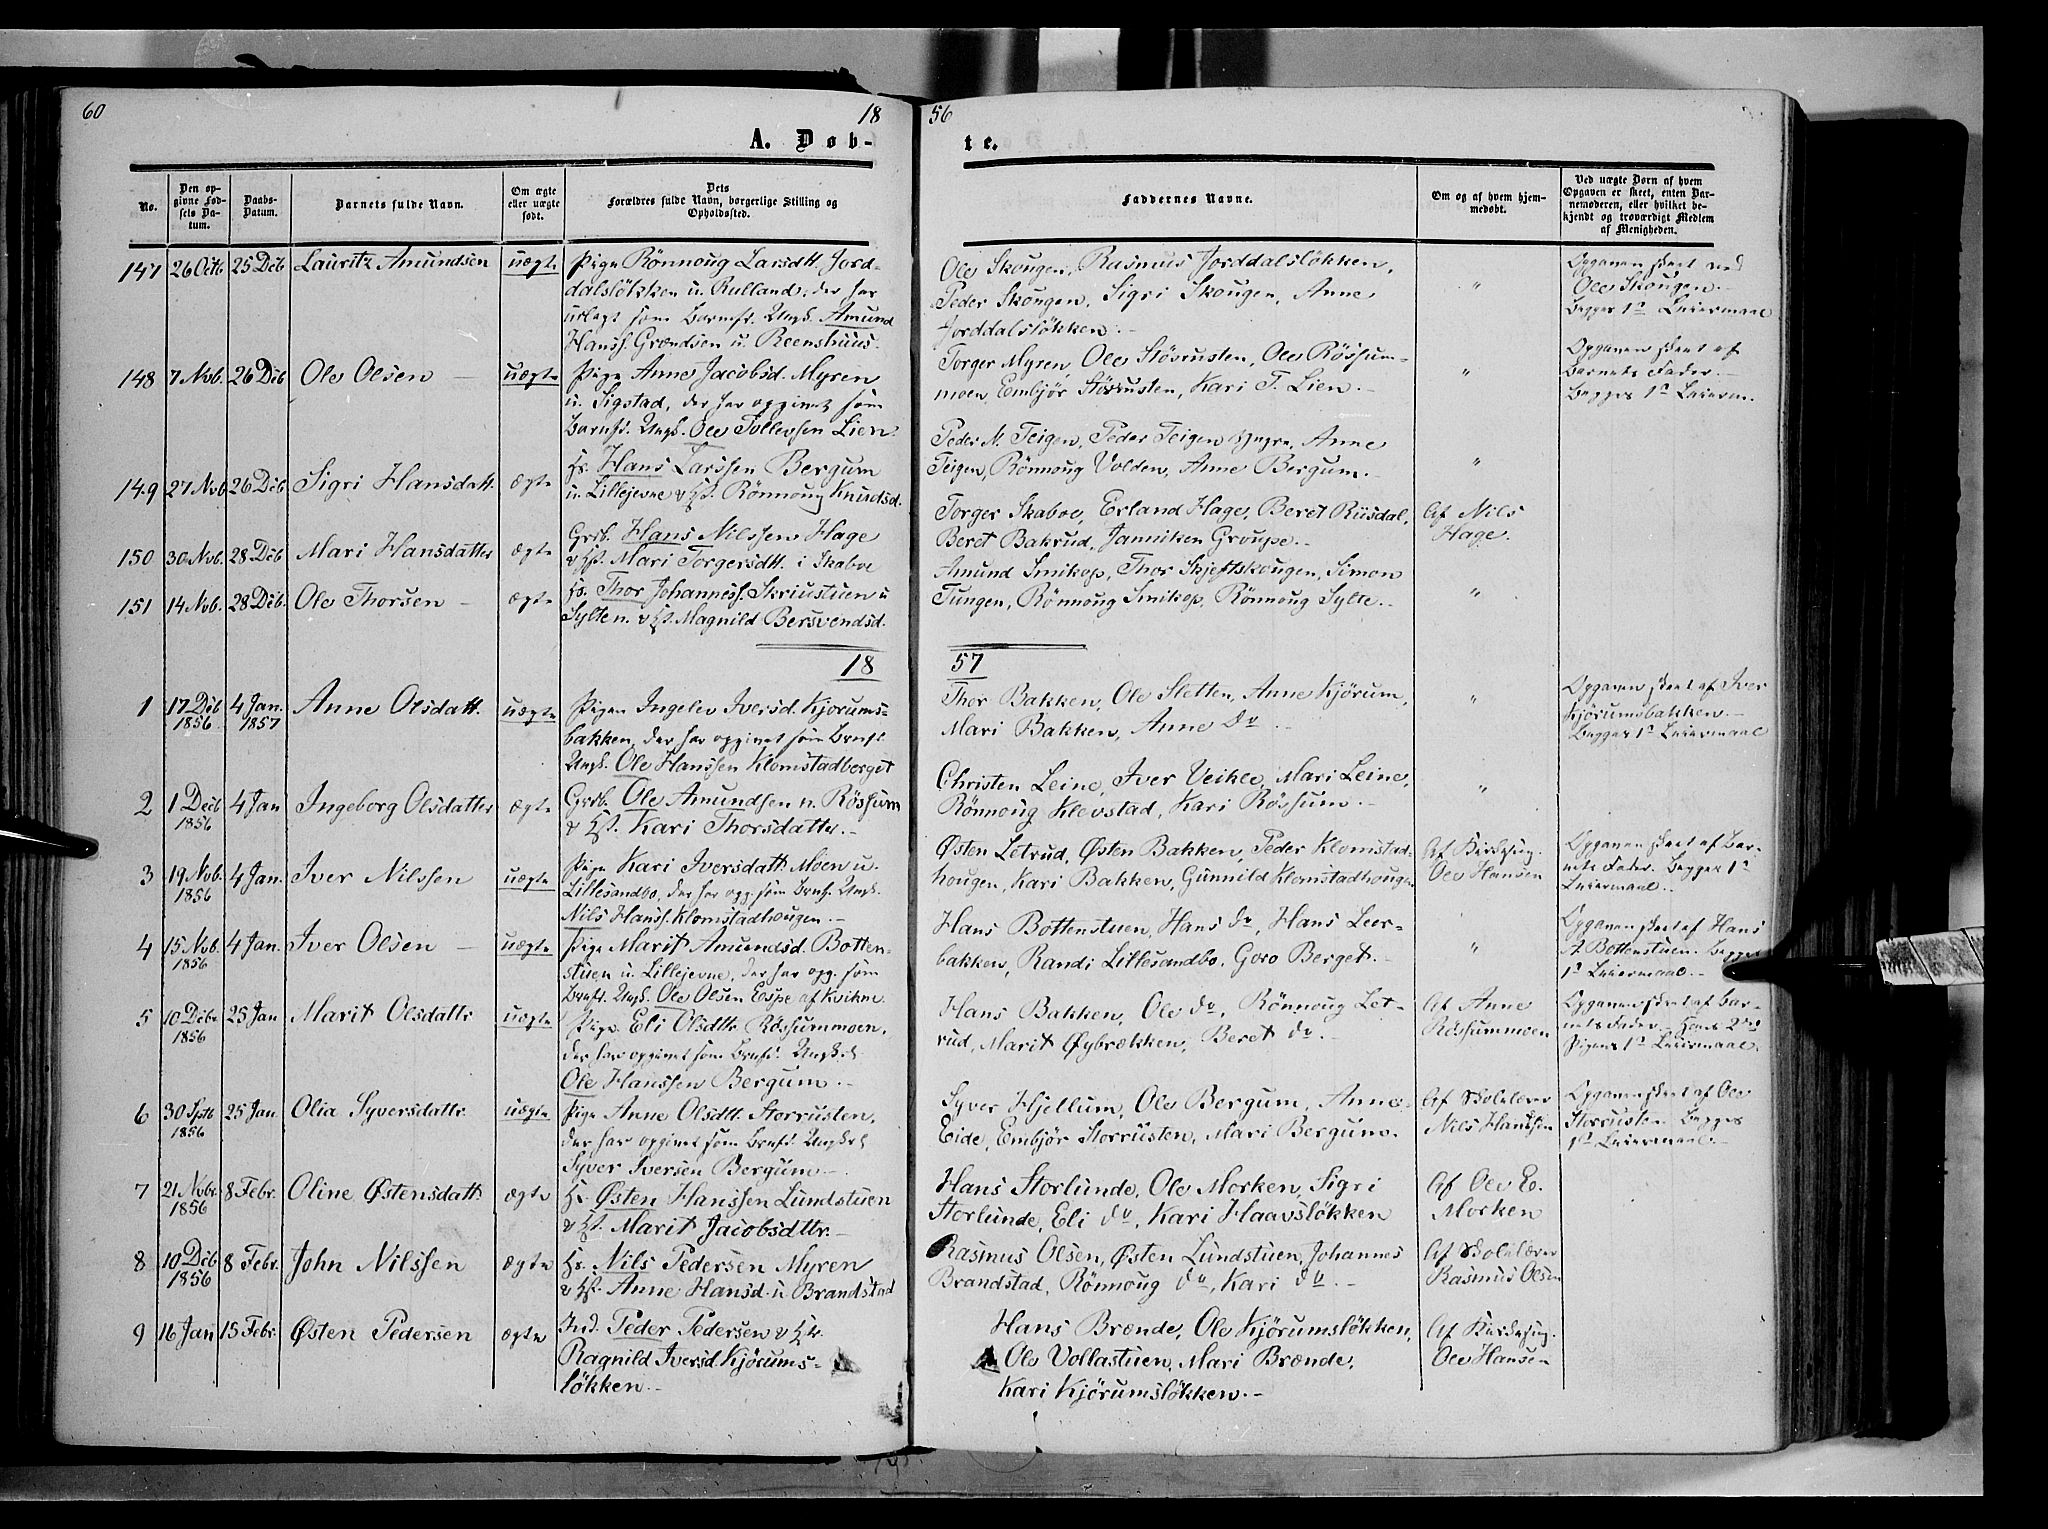 60
18
56
A. Døb-
te.
No.
Den opgivne Fødsels Datum.
Daabs-Datum.
Barnets fulde Navn.
Om ægte eller uægte født.
Dets Forældres fulde Navn, borgerlige Stilling og Opholdssted.
Faddernes Navne.
Om og af hvem hjemmedøbt.
Ved uægte Børn af hvem Opgaven er skeet, enten Barnemoderen, eller hvilket bekjendt og troværdigt Medlem af Menigheden.
147 26 Octb 25 Deb Lauritz Amundsen uægte Pige Rönnoug Larsdtt. Jord-
dalslökken u. Rulland, der har
udlagt som Barnefr. Ungk. Amund
Hanss. Grændsen u. Reenshuus.
Ole Skougen, Rasmus Jorddalslökken,
Peder Skougen, Sigri Skougen, Anne
Jorddalslökken.
"
Opgaven skeet ved
Ole Skougen.
Begges 1s Leiermaal
148 7 Nvb. 26 Deb Ole Olsen uægte Pige Anne Jacobsd. Myren
u. Sigstad, der har opgivet som
Barnfd. Ungk. Ole Tollevsen Lien.
Torger Myren, Ole Störusten, Ole Rössum-
moen, Embjør Störrusten, Kari T. Lien.
"
Opgaven skeet af
Barnets Fader.
Begges 1s Leierm.
149 27 Nvb 26 Deb Sigri Hansdatt. ægte Hs. Hans Larssen Bergum
u. Lillejevne & Hst. Rönnoug Knudsd.
Peder N. Teigen, Peder Teigen yngre, Anne
Teigen, Rönnoug Volden, Anne Bergum.
"
150 30 Nvb. 28 Deb Mari Hansdatter ægte Grdb. Hans Nilssen Hage
& Hst. Mari Torgersdtt. i Skaboe
Torger Skaboe, Erland Hage, Beret Riisdal,
Beret Bakrud, Janniken Groupe.
Af Nils
Hage.
151 14 Nvb. 28 Deb. Ole Thorsen ægte Hs. Thor Johanness. Skriustuen u
Sylten. & Hst. Magnild Bersvendsd.
Amund Smikop, Thor Skjeftskougen, Simon
Tungen, Rönnoug Smikop, Rönnoug Sylte.
"
18
57
1 17 Deb 1856 4 Jan. 1857 Anne Olsdatt. uægte Pigen Ingelev Iversd. Kjorums-
bakken, der har opgivet som Brnfd.
Ungk. Ole Hanssen Klomstadberget
Thor Bakken, Ole Sletten, Anne Kjörum,
Mari Bakken, Anne do
"
Opgaven skeet af Iver
Kjörumsbakken.
Begges 1s Leiermaal
2 1 Deb 1856 4 Jan Ingeborg Olsdatter ægte Grdb. Ole Amundsen n. Rössum
& Hst. Kari Thorsdatter.
Christen Leine, Iver Veikle, Mari Leine,
Rönnoug Klevstad, Kari Rössum.
"
3 19 Nvb. 1856 4 Jan. Iver Nilssen uægte Pige Kari Iversdatt. Moen u.
Lillesandbo, der har opg. som Brnf. Ungk.
Nils Hanss. Klomstadhougen.
Østen Letrud, Østen Bakken, Peder Klomstad-
hougen, Kari Bakken, Gunnild Klomstadhougen
Af Kirkesng.
Ole Hansen
Opgaven skeet af Bar-
nets Fader. Begges 1s
Leiermaal.
4 15 Nvb. 1856 4 Jan. Iver Olsen uægte Pige Marit Amundsd. Botten-
stuen u. Lillejevne, der har opg. som
Brnfr. Ungk. Ole Olsen Espe af Kvikne.
Hans Bottenstuen, Hans do, Hans Leer-
bakken, Randi Lillesandbo, Goro Berget.
"
Opgaven skeet af Hans
A. Bottenstuen. Begges
1s Leiermaal.
5 10 Debr 1856 25 Jan Marit Olsdattr uægte Pige Eli Olsdttr Rössummoen,
der har opgivet som Brnfd. Ungk.
Ole Hanssen Bergum.
Hans Bakken, Ole do, Rönnoug Let-
rud, Marit Øybrækken, Beret do.
Af Anne
Rössummoen
Opgaven skeet af Bar-
nets Fader. Hans 2det
Pigens 1s Leiermaal.
6 30 Sptb 1856 25 Jan. Olia Syversdattr. uægte Pige Anne Olsdtt. Storrusten,
der har opgivet som Brnfd. Ungk.
Syver Iversen Bergum.
Syver Hjellum, Ole Bergum, Anne
Eide, Embjör Storrusten, Mari Bergum.
Af Skolelærer
Nils Hanssen
Opgaven skeet af Ole
Storrusten Begges
1s Leiermaal.
7 21 Nvbr. 1856 8 Febr. Oline Østensdatt. ægte Hs. Østen Hanssen Lundstuen
& Hst. Marit Jacobsdttr.
Hans Storlunde, Ole Morken, Sigri
Storlunde, Eli do, Kari Haavslökken
Af Ole E.
Morken
8 10 Deb 1856 8 Febr. John Nilssen ægte Hs. Nils Pedersen Myren
& Hst. Anne Hansd. u Brandstad
Rasmus Olsen, Østen Lundstuen, Johannes
Brandstad, Rönnoug do, Kari do.
Af Skolelærer
Rasmus Olsen
9 16 Jan 15 Febr. Østen Pedersen ægte Ind. Peder Pedersen & Hu.
Ragnild Iversd. Kjörums-
lökken.
Hans Brænde, Ole Kjörumslökken,
Ole Vollastuen, Mari Brænde,
Kari Kjörumslökken.
Af Kirkesng.
Ole Hansen